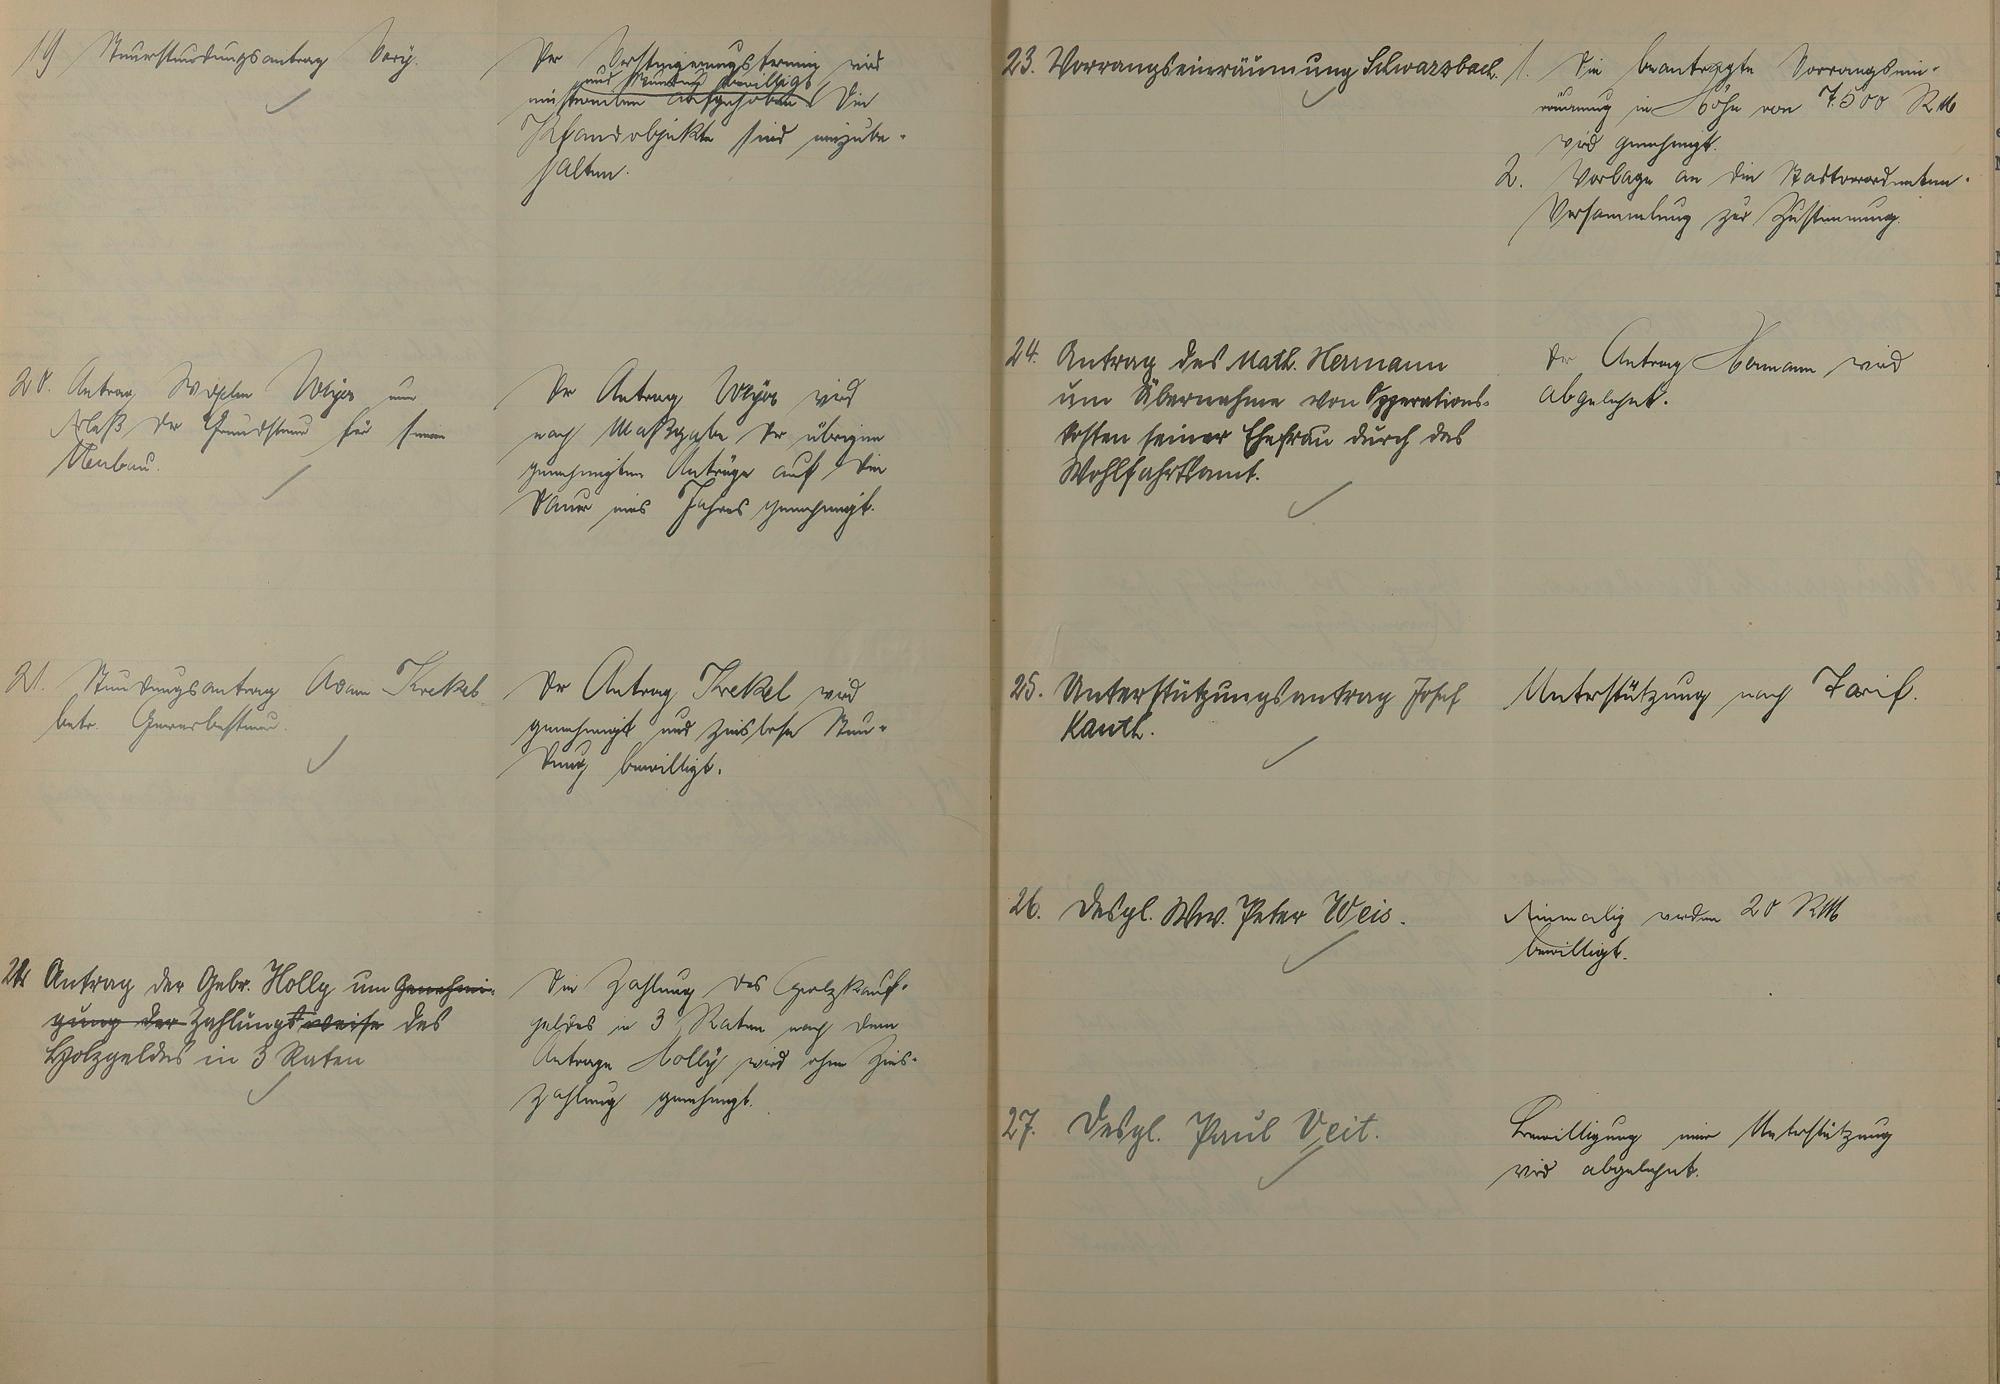 19) Steuerstundungsantrag Vorÿ.
Der Versteigerungstermin wird
und Stundung bewilligt
einstweilen aufgehoben. Die
Pfandobjekte sind einzube-
halten.
20. Antrag Wilhelm Weÿer um
Erlaß der Grundsteuer für seinen
Neubau.
Der Antrag Weÿer wird
nach Maßgabe der übrigen
genehmigten Anträge auf die
Dauer eines Jahres genehmigt.
21. Stundungsantrag Adam Krekel
betr. Gewerbesteuer.
Der Antrag Krekel wird
genehmigt und zinslose Stun-
dung bewilligt.
22. Antrag der Gebr. Holly um Genehmi-
gung der Zahlungsweise des
Holzgeldes in 3 Raten
Die Zahlung des Holzkauf-
geldes in 3 Raten nach dem
Antrage Hollÿ wird ohne Zins-
zahlung genehmigt.
23. Vorrangseinräumung Schwarzbach.
1. Die beantragte Vorrangsein-
räumung in Höhe von 7.500 RM
wird genehmigt.
2. Vorlage an die Stadtverordneten-
Versammlung zur Zustimmung.
24. Antrag des Math. Hermann
um Übernahme von Opperations-
kosten seiner Ehefrau durch das
Wohlfahrtsamt.
Der Antrag Hermann wird
abgelehnt.
25. Unterstützungsantrag Josef
Kauth.
Unterstützung nach Tarif.
26. Desgl. Ww. Peter Weis.
Einmalig werden 20 RM
bewilligt.
27. Desgl. Paul Veit.
Bewilligung einer Unterstützung
wird abgelehnt.